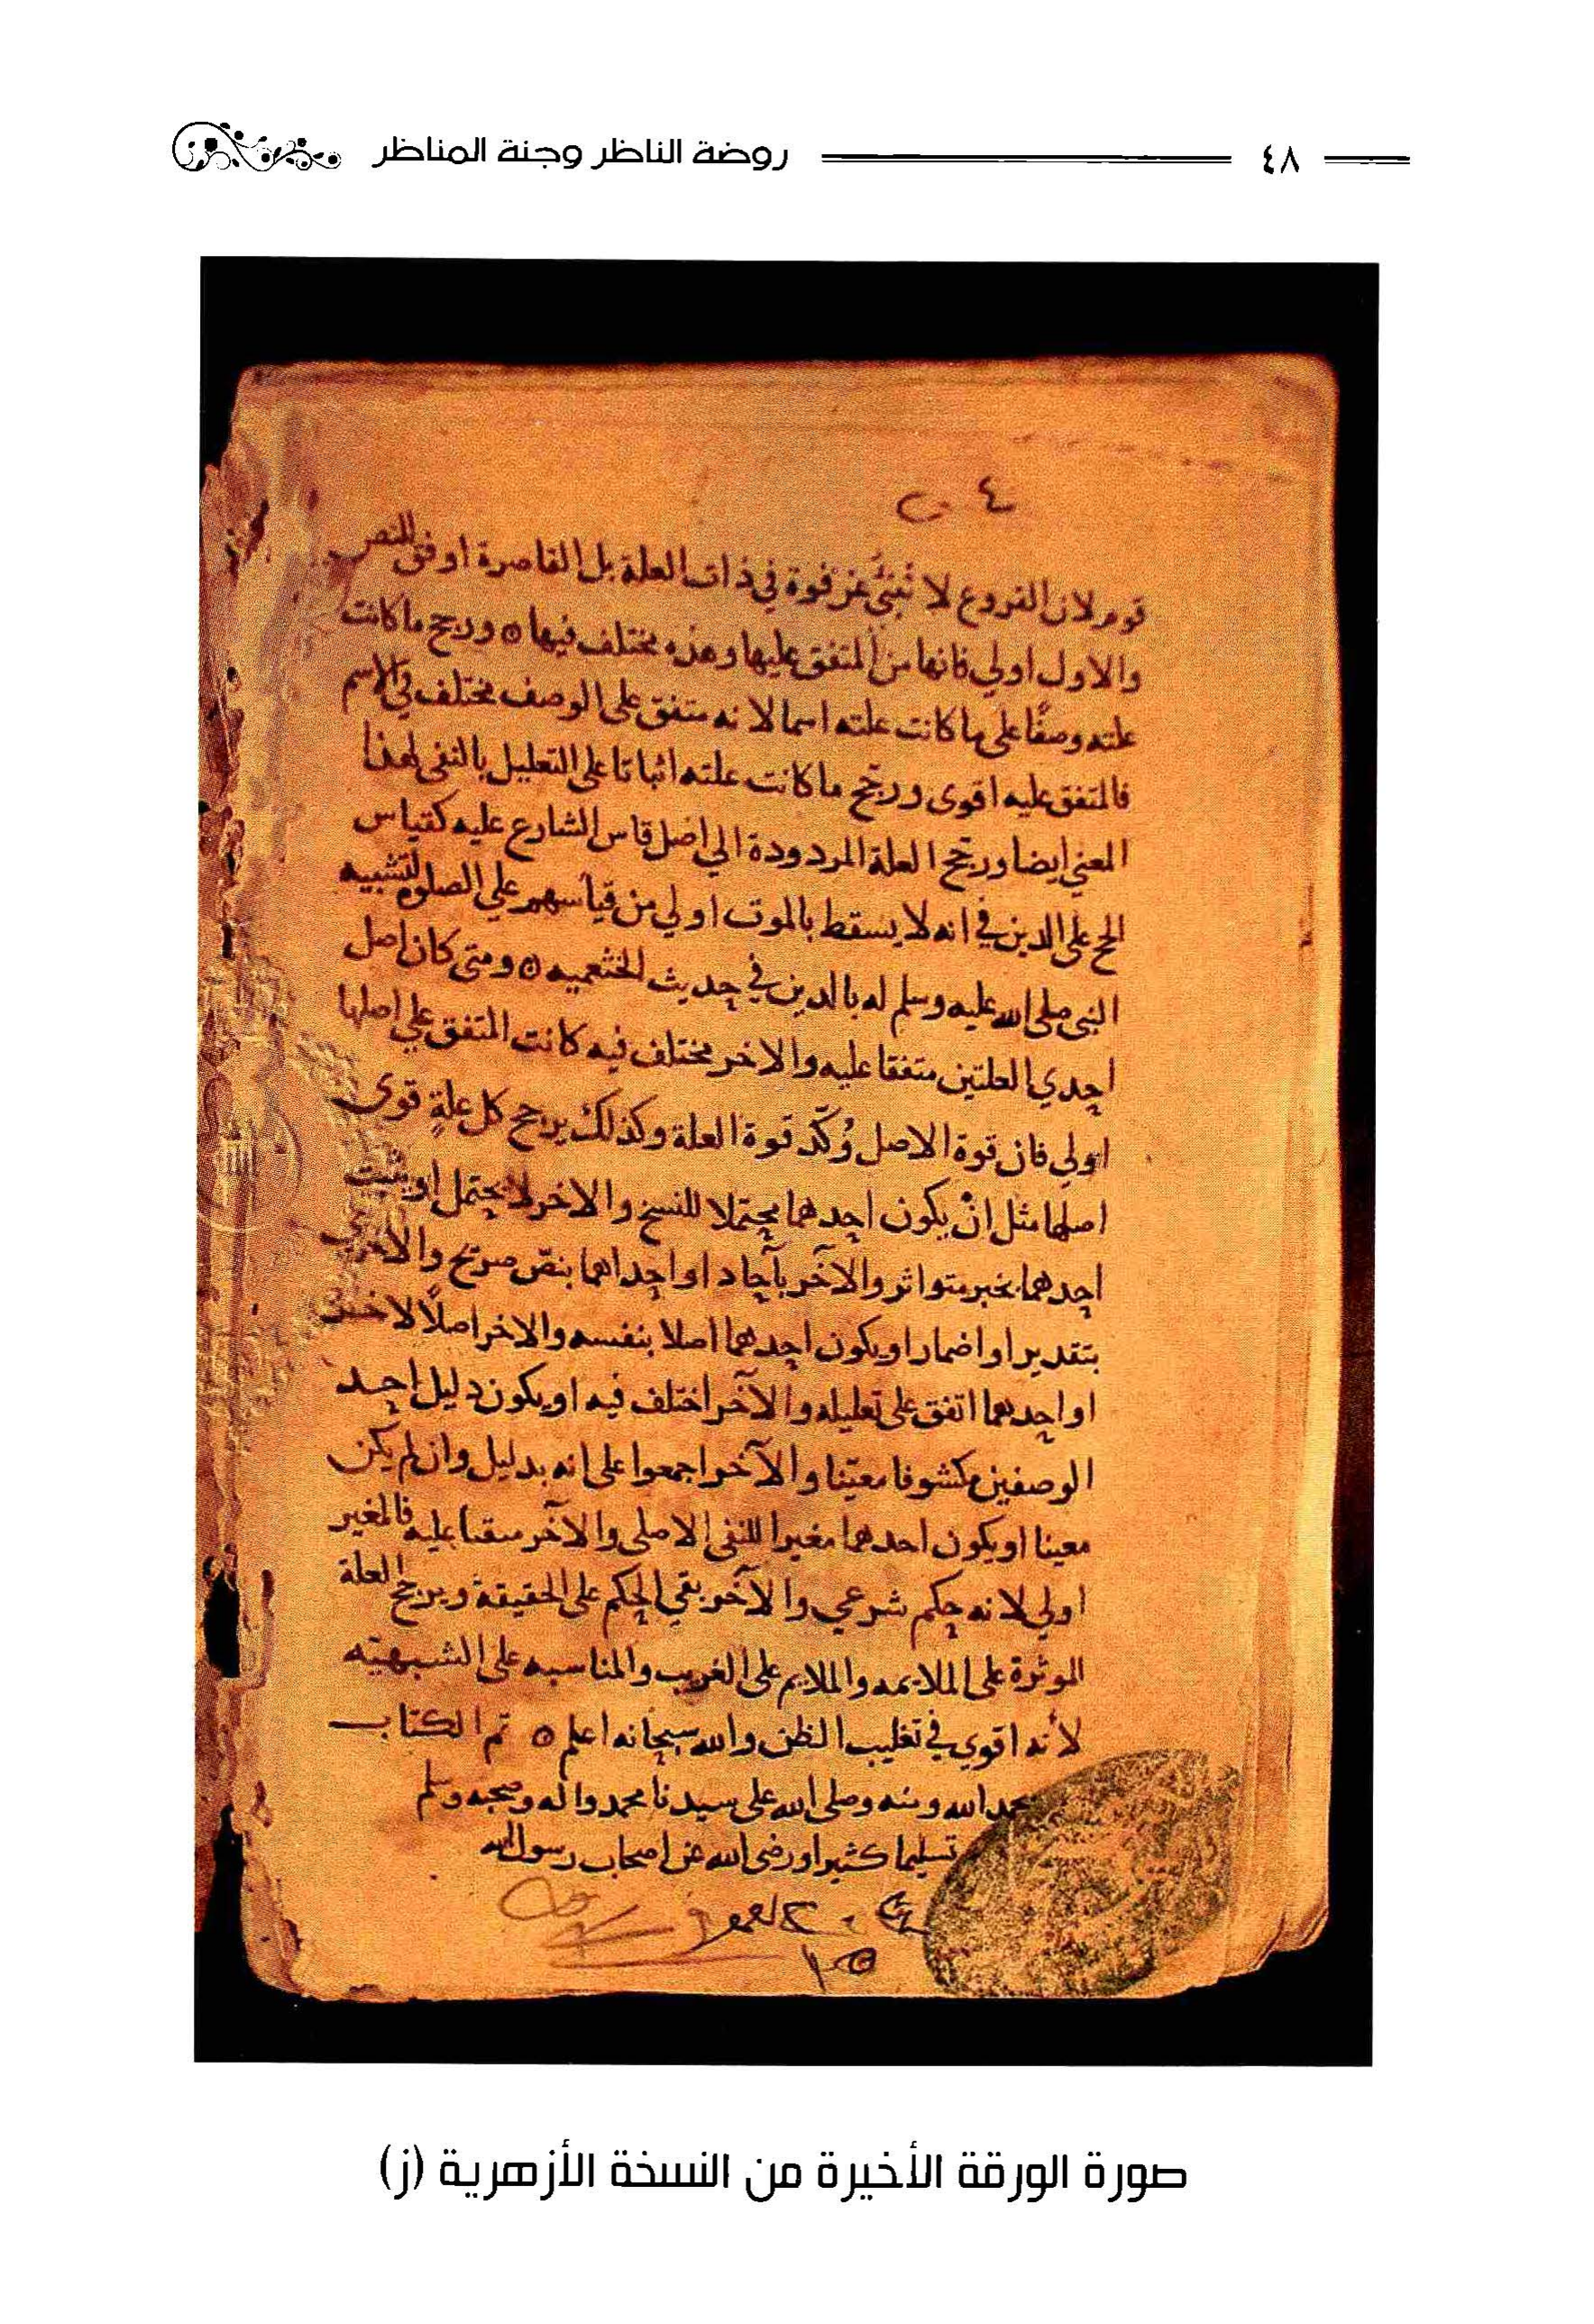 ٤٨
روضة الناظر وجنة المناظر
قوم لان الفروع لا تُنبئُ عن قوة في ذات العلة بل القاصرة اوفق للنص
والاول اولي فانها من المتفق عليها وهذه مختلف فيها ورجح ما كانت
علته وصفًا على ما كانت علته اسما لانه متفق على الوصف مختلف في الاسم
فالمتفق عليه اقوى ورجّح ما كانت علته اثباتا على التعليل بالنفى لهذا
المعني ايضا ورجح العلة المردودة الي اصل قاس الشارع عليه كقياس
الحج على الدين في انه لا يسقط بالموت اولي من قياسهم علي الصلوة لتشبيه
النبي صلى الله عليه وسلم له بالدين في حديث الخثعميه ومتى كان اصل
احدي العلتين متفقا عليه والاخر مختلف فيه كانت المتفق علي اصلها
اولي فان قوة الاصل وُكّد قوة العلة وكذلك يرجح كل علةٍ قوى
اصلها مثل انْ يكون احدهما محتملا للنسخ والاخر لا يحتمل او يثبت
احدهما بخبر متواتر والآخر بآحاد او احداهما بنصّ صريح والاخرى
بتقدير او اضمار او يكون احدهما اصلا بنفسه والاخر اصلًا لاخر
او احدهما اتفق على تعليله والآخر اختلف فيه او يكون دليل احد
الوصفين مكشوفا معيّنا والآخر اجمعوا على انه بدليل وان لم يكن
معينا او يكون احدهما مغيرا للنفى الاصلى والآخر مبقيا عليه فالمغير
اولي لانه حكم شرعي والآخر بقي الحكم على الحقيقة ويرجح العلة
الموثرة على الملايمه والملايم على الغريب والمناسبه على الشبهيّه
لأنه اقوي في تغليب الظن والله سبحانه اعلم تم الكتاب
بحمد الله ومنه وصلى الله على سيدنا محمد واله وصحبه وسلم
تسليما كثيرا ورضى الله عن اصحاب رسول الله
صورة الورقة الأخيرة من النسخة الأزهرية (ز)